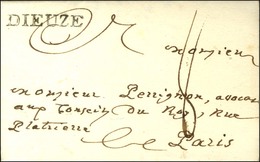 DIEUZE
Monsieur
Monsieur Perrignon, avocat
aux Conseils du Roy, Rue
Platriere
Paris